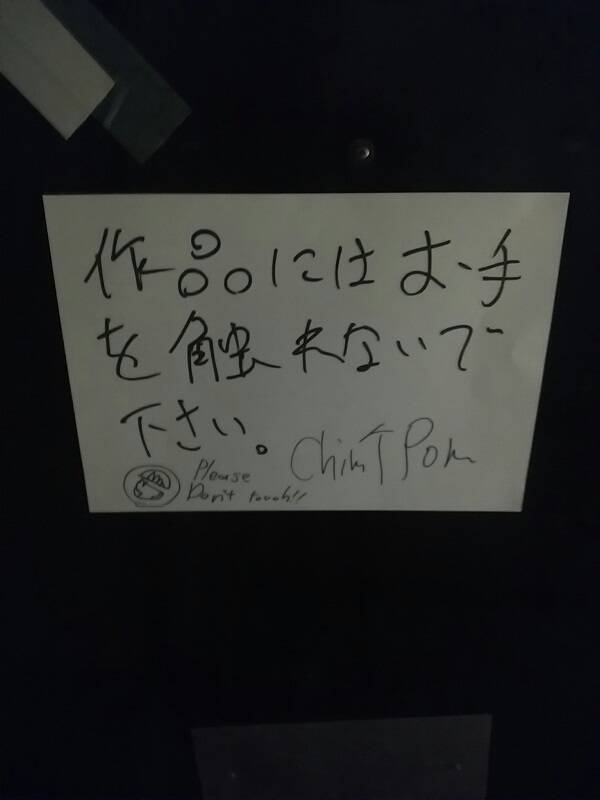 作品にはお手
を触れないで
下さい。
Chim↑Pom
Please
Don't touch!!